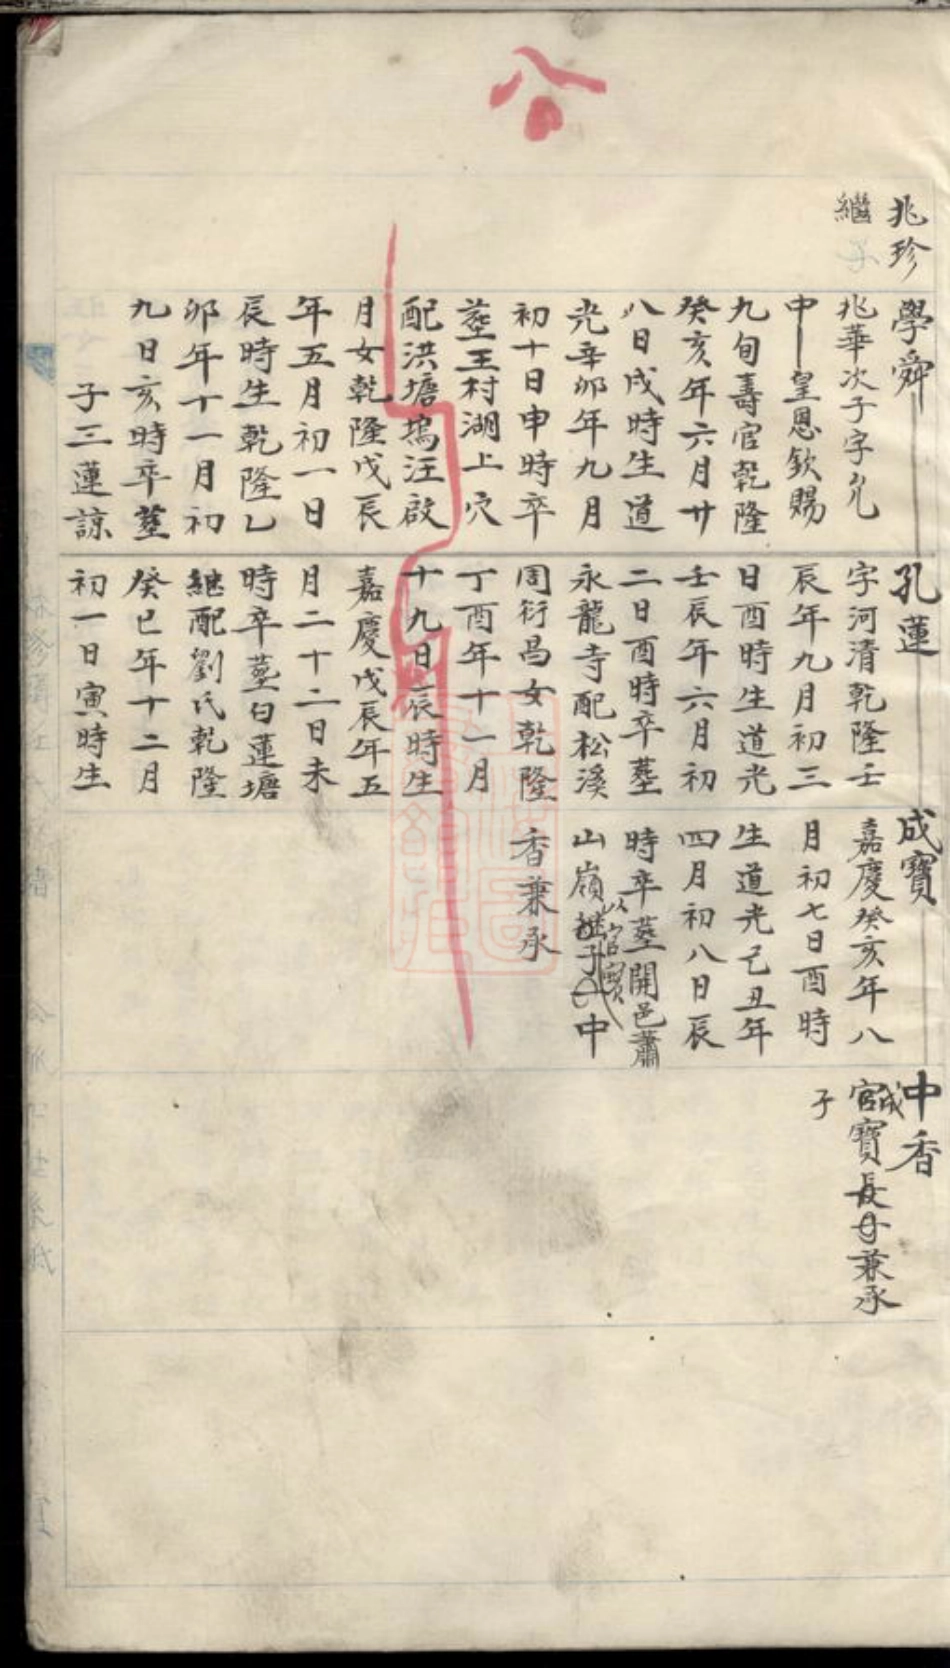 公
兆珍
繼
學舜
兆華次子字允
中皇恩欽賜
九旬壽官乾隆
癸亥年六月廿
八日戌時生道
光辛卯年九月
初十日申時卒
塟王村湖上穴
配洪塘塢汪啟
月女乾隆戊辰
年五月初一日
辰時生乾隆乙
卯年十一月初
九日亥時卒塟
子三蓮諒
孔蓮
字河清乾隆壬
辰年九月初三
日酉時生道光
壬辰年六月初
二日酉時卒塟
永龍寺配松溪
周衍昌女乾隆
丁酉年十一月
十九日辰時生
嘉慶戊辰年五
月二十二日未
時卒塟白蓮塘
繼配劉氏乾隆
癸巳年十二月
初一日寅時生
成寶
嘉慶癸亥年八
月初七日酉時
生道光己丑年
四月初八日辰
時卒塟開邑蕭
山嶺以官寶繼子中
香兼承
中香
官成寶長子兼承
子